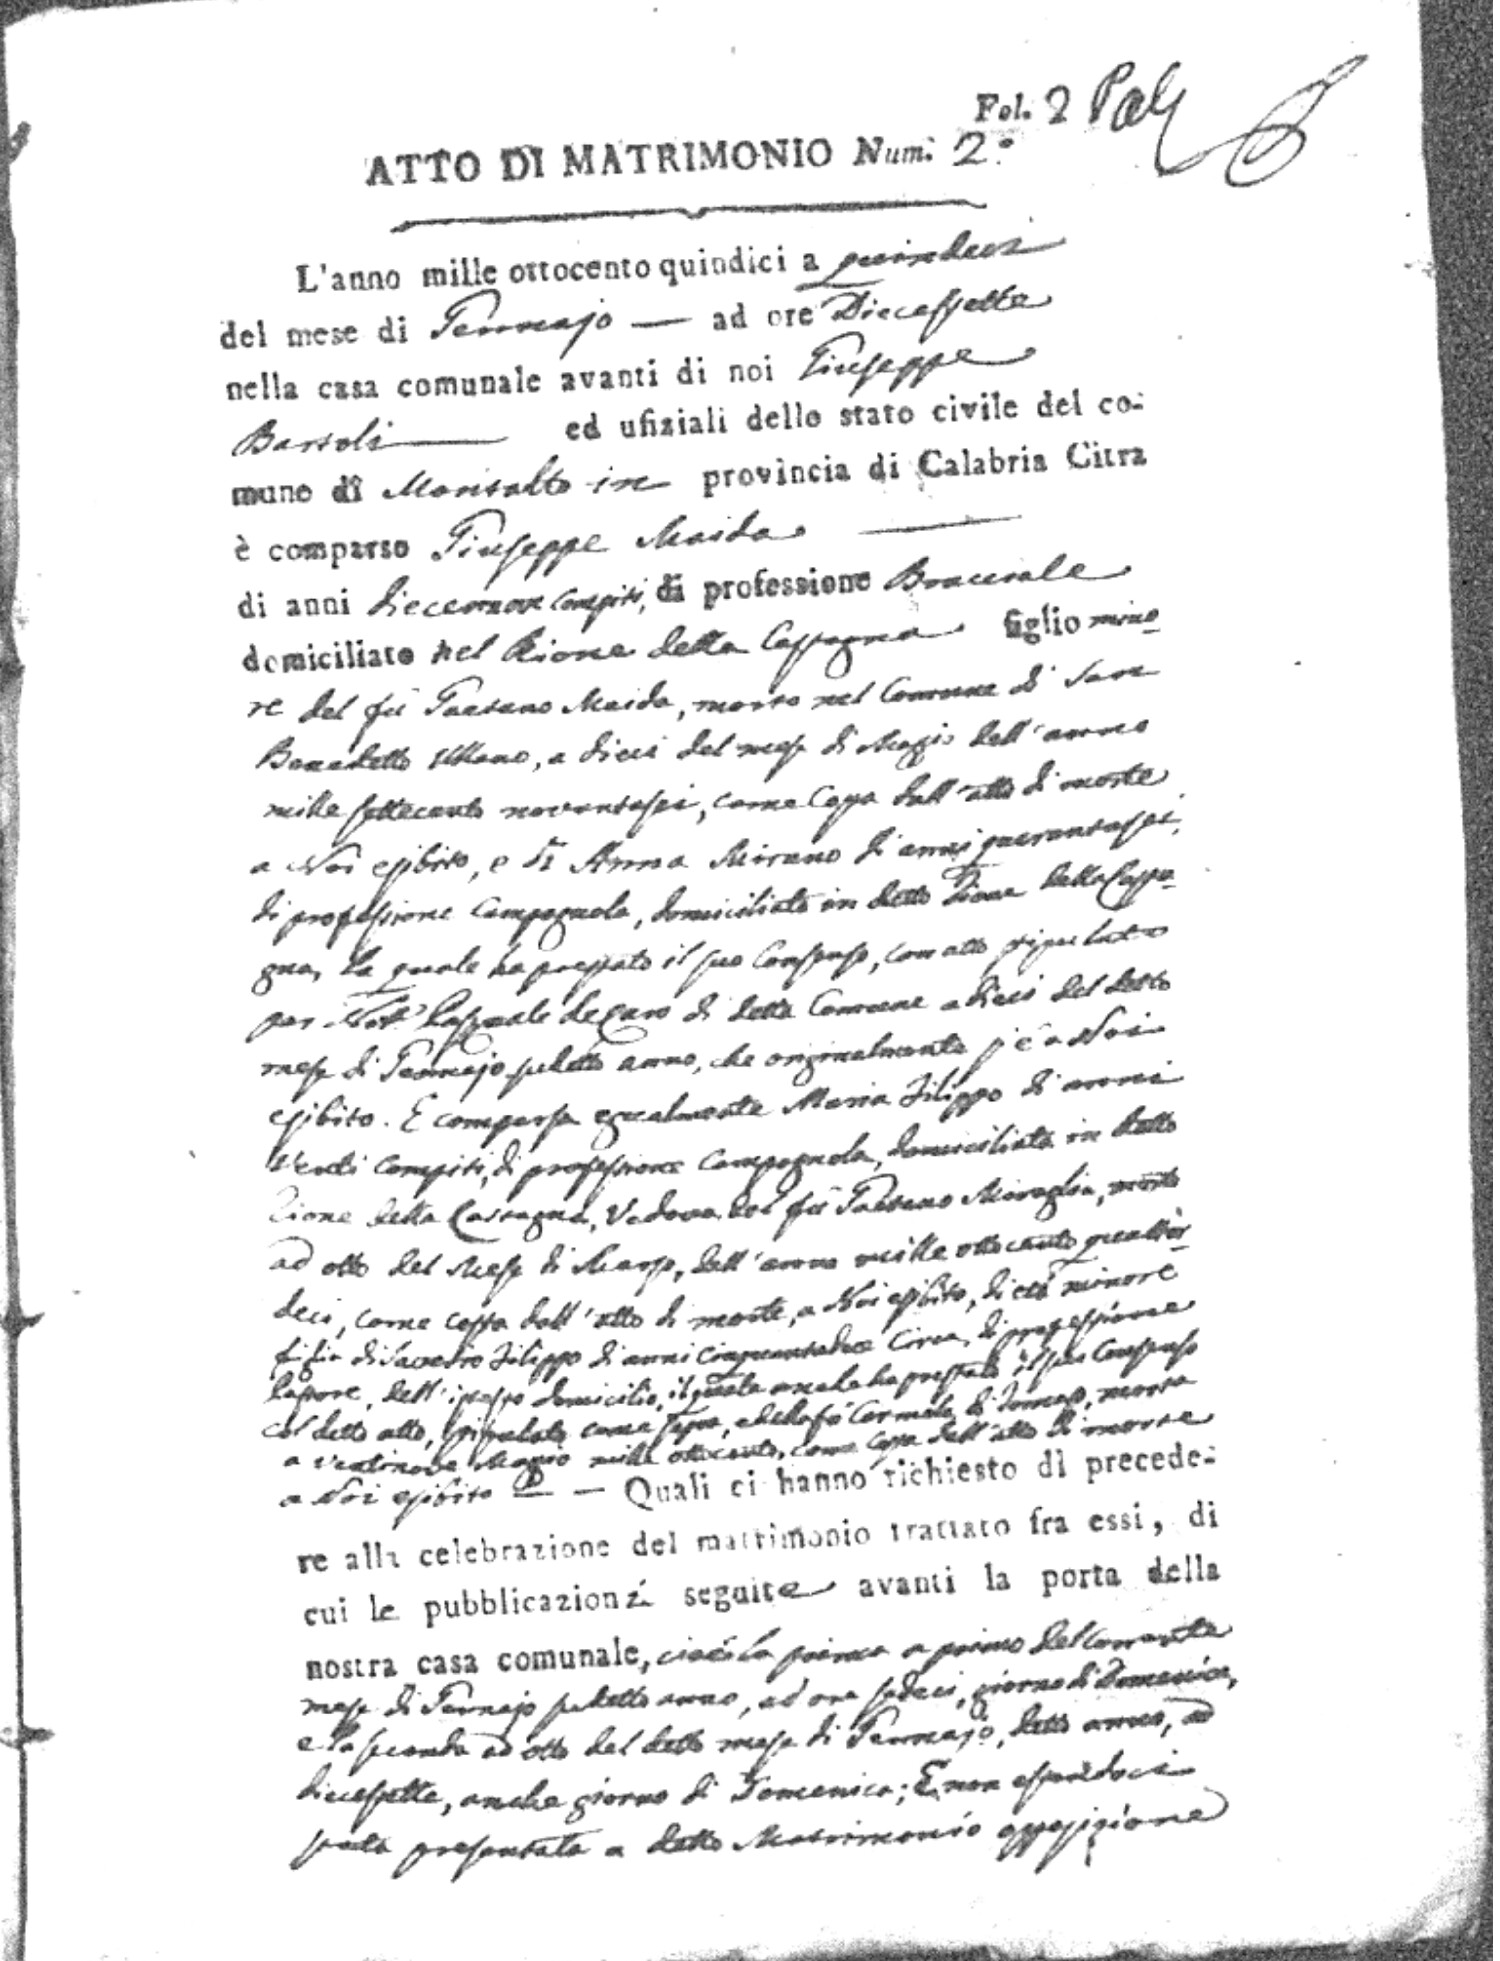 Fol. 2
ATTO DI MATRIMONIO Num. 2.°
L'anno mille ottocento quindici a quindeci
del mese di Gennajo — ad ore Diecessette
nella casa comunale avanti di noi Giuseppe
Bartoli ed ufiziali dello stato civile del co-
mune di Montalto in provincia di Calabria Citra
è comparso Giuseppe Maida
di anni diecennove compiti, di professione Bracciale
domiciliato nel Rione della Castagna figlio mino
re del fù Gaetano Maida, morto nel Comune di San
Benedetto Ullano, a dieci del mese di Magio dell'anno
mille settecento novantasei, come costa dall'atto di morte
a Noi esibito, e di Anna Mirano di anni quarantasei,
di professione Campagnola, domiciliata in detto Rione della Casta-
gna, la quale ha prestato il suo Consenso, con atto stipulato
per Not.r Pasquale de Caro di detta Comune a dieci del detto
mese di Gennajo sudetto anno, che originalmente s'è a Noi
esibito. E comparsa egualmente Maria Filippo di anni
Venti compiti, di professione Campagnola, domiciliata in detto
Rione della Castagna, Vedova del fù Gaetano Miraglia, morto
ad otto del Mese di Marzo, dell'anno mille ottocento quattor-
deci, come costa dall'atto di morte, a Noi esibito, di età minore
figlia di Saverio Filippo di anni cinquantadue circa, di professione
Pastore, dell'istesso domicilio, il quale anche ha prestato il suo Consenso
col detto atto, stipulato come sopra, e della fù Carmela di morta
a ventinove Magio mille ottocento, come costa dall'atto di morte
a Noi esibito — Quali ci hanno richiesto di precede-
re alla celebrazione del matrimonio trattato fra essi, di
cui le pubblicazioni seguite avanti la porta della
nostra casa comunale, cioè la prima a primo del corrante
mese di Gennajo sudetto anno, ad ore sedeci, giorno di Domenica,
e la seconda ad otto del detto mese di Gennajo, detto anno, ad
diecesette, anche giorno di Domenica; E non essendoci
stata presentata a detto Matrimonio opposizione